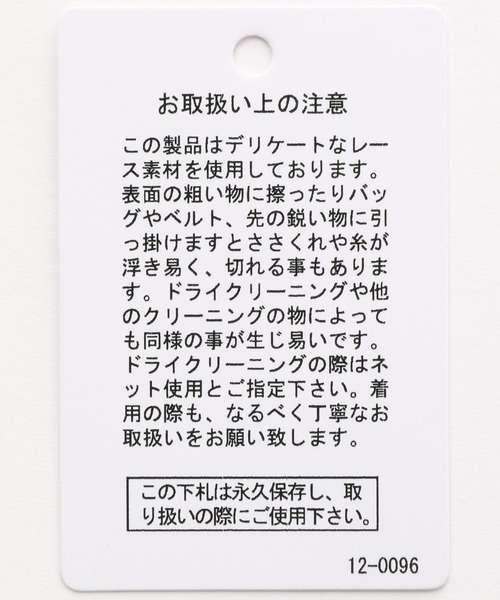 お取扱い上の注意
この製品はデリケートなレー
ス素材を使用しております。
表面の粗い物に擦ったりバッ
グやベルト、先の鋭い物に引
っ掛けますとささくれや糸が
浮き易く、切れる事もありま
す。ドライクリーニングや他
のクリーニングの物によって
も同様の事が生じ易いです。
ドライクリーニングの際はネ
ット使用とご指定下さい。着
用の際も、なるべく丁寧なお
取扱いをお願い致します。
この下札は永久保存し、取
り扱いの際にご使用下さい。
12-0096